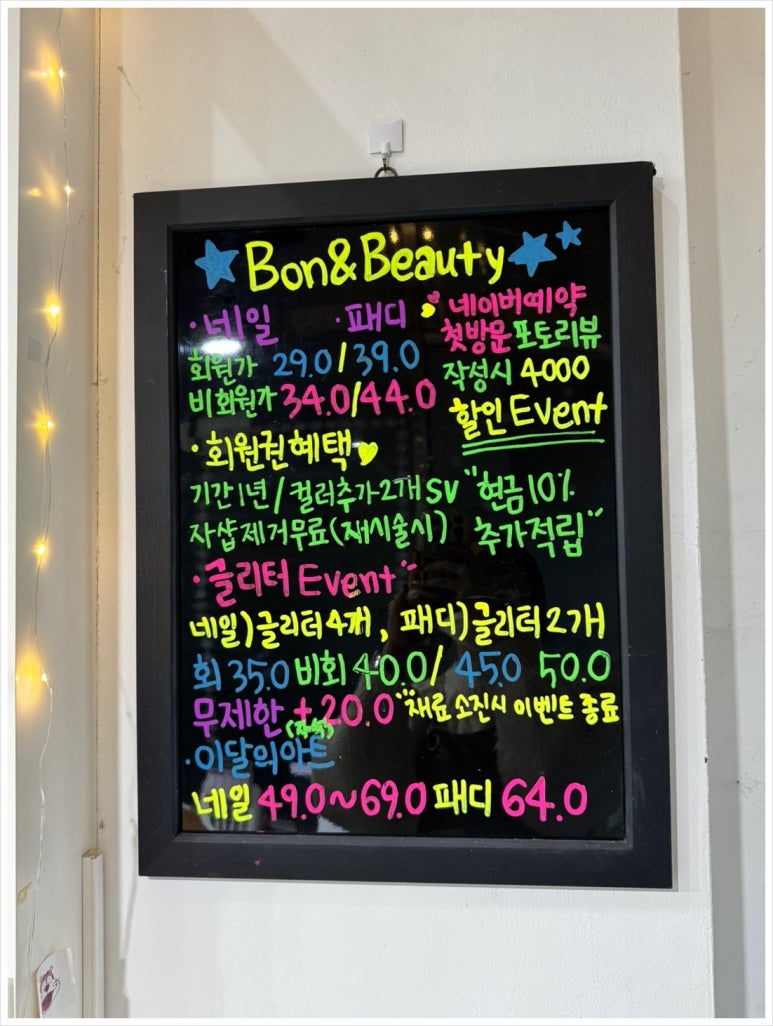 Bon&Beauty
·네일 ·패디
회원가 29.0/39.0
비회원가 34.0/44.0
네이버예약
첫방문포토리뷰
작성시 4000
할인 Event
·회원권혜택
기간1년/컬러추가2개 SV
자샵제거무료(재시술시)
"현금10%
추가적립"
·글리터 Event"
네일)글리터4개, 패디)글리터2개
회 35.0 비회 40.0/ 45.0 50.0
무제한 +20.0 "재료 소진시 이벤트 종료
·이달의아트
네일 49.0~69.0 패디 64.0